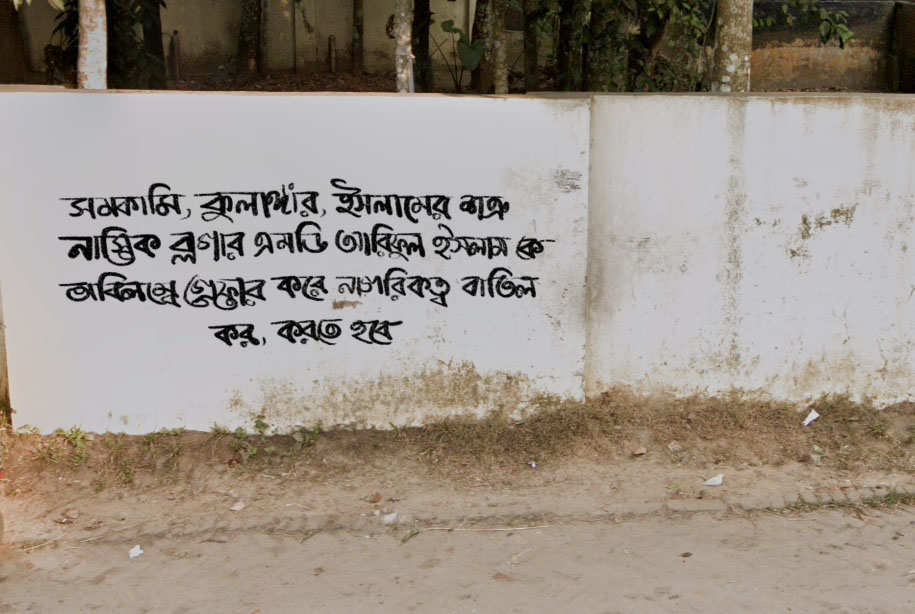 সমকামি, কুলাঙ্গার, ইসলামের শত্রু
নাস্তিক ব্লগার এমডি আরিফুল ইসলাম কে
অবিলম্বে গ্রেফ্তার করে নাগরিকত্ব বাতিল
কর, করতে হবে